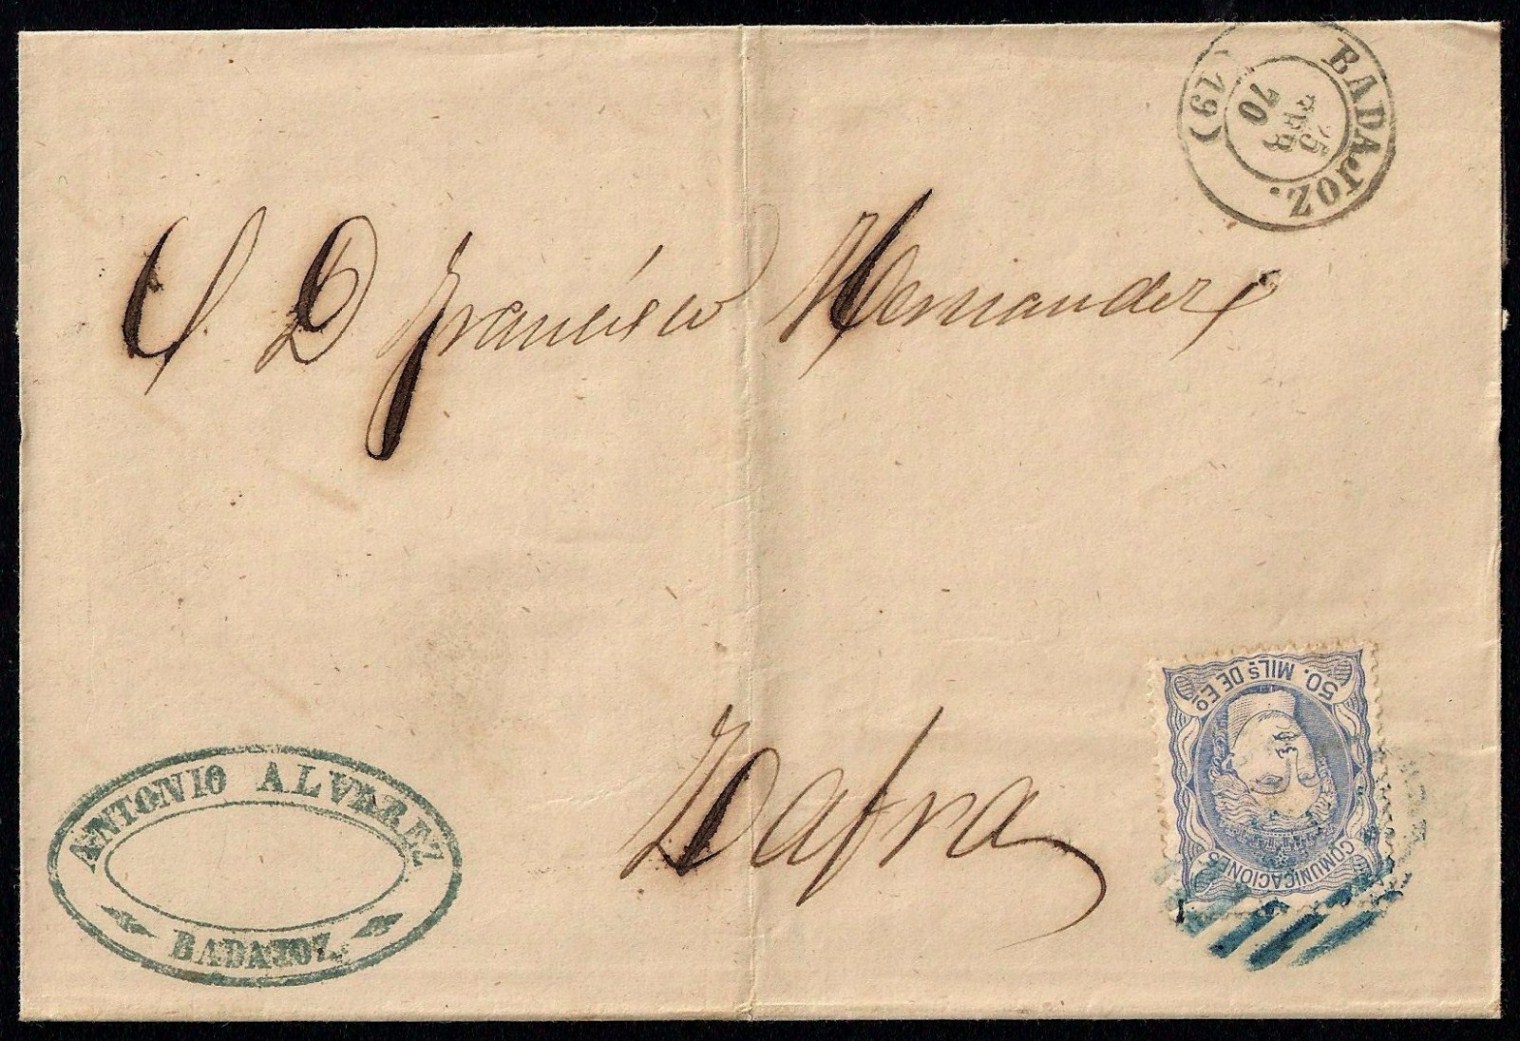 BADAJOZ.
25
ABR
70
(19)
S. D Francisco Hernandez
Zafra
50. MILs DE Eo
COMUNICACIONES
ANTONIO ALVAREZ
BADAJOZ.